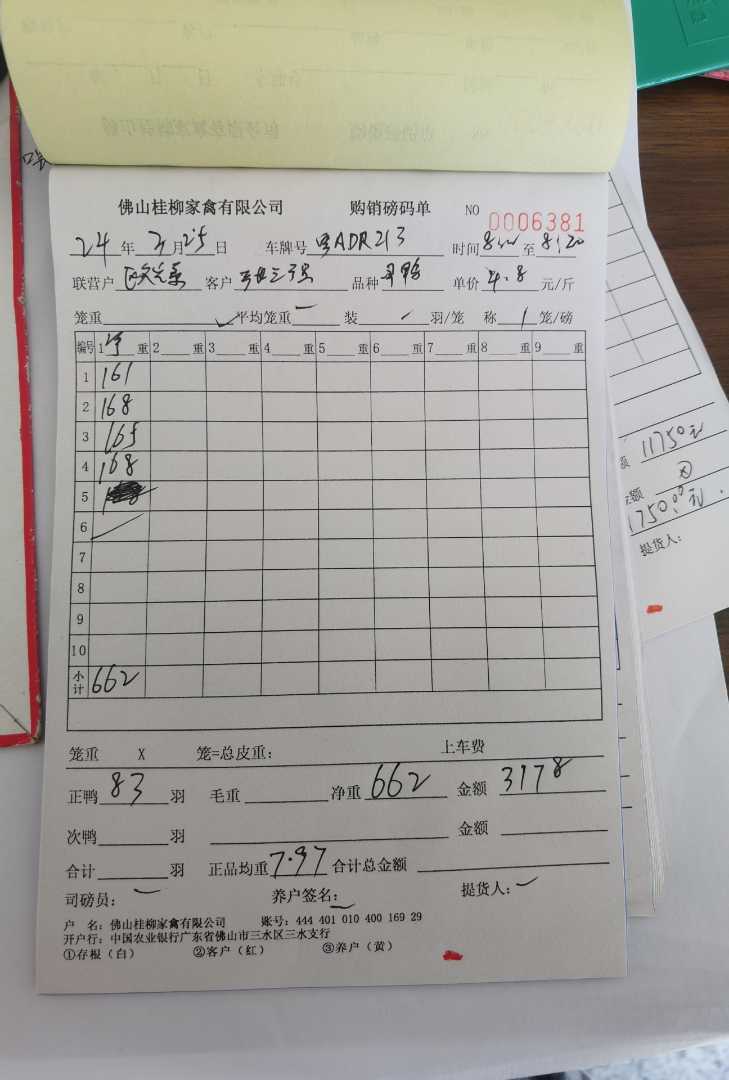 佛山桂柳家禽有限公司 购销磅码单 NO 0006381
24 年 3 月 25 日 车牌号 粤ADR213 时间 至 8:20
联营户 客户 品种 单价 4.8 元/斤
笼重 平均笼重 装 羽/笼 称 1 笼/磅
编号 1 重 2 重 3 重 4 重 5 重 6 重 7 重 8 重 9 重
1 161
2 168
3 165
4 168
5
6
7
8
9
10
小计 662
笼重 X 笼=总皮重: 上车费
正鸭 83 羽 毛重 净重 662 金额 3178
次鸭 羽 金额
合计 羽 正品均重 7.97 合计总金额
司磅员: 养户签名: 提货人:
户 名: 佛山桂柳家禽有限公司 账号: 444 401 010 400 169 29
开户行: 中国农业银行广东省佛山市三水区三水支行
①存根(白) ②客户(红) ③养户(黄)
额 11750元
金额
1750.00元.
提货人: